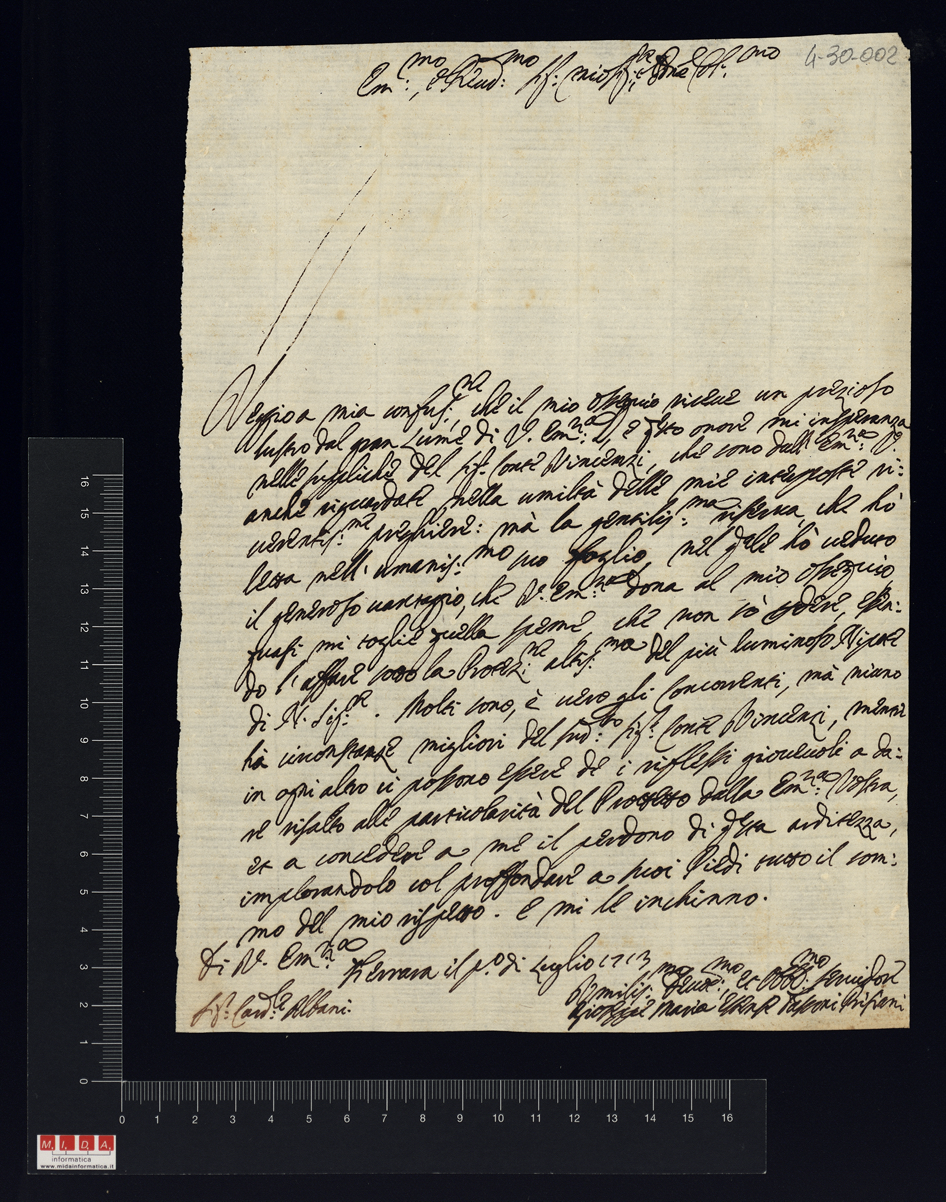 4-30-002
Em.mo, e Reud.mo Sig.r mio Sig.r e Pne Col.mo
Veggio a mia confus.ne che il mio ossequio riceve un prezioso
lustro dal gran Lume di V. Em.za, e q.sto onore mi insperanza
nelle suppliche del sig.r Conte Vincenzi, che sono dall' Em.za V.
anche riguardate nella umiltà delle mie interposte ri:
verentis.me preghiere: mà la gentilis.ma riserva che hò
letta nell' umanis.mo suo foglio, nel q.le hò veduto
il generoso vantaggio, che V. Em.za dona al mio ossequio,
quasi mi toglie quella speme, che non sò perdere, essen:
do l'affare sotto la Protez.ne altis.ma del più luminoso Nipote
di N. Sig.re. Molti sono, è vero gli Concorrenti, mà niuno
hà circonstanze migliori del sud.to Sig.r Conte Vincenzi, mentre
in ogni altro ci possono essere de i riflessi giovevoli a da:
re risalto alle particolarità del Protetto dalla Em.za Vostra,
et a concedere a me il perdono di q.sta arditezza,
implorandolo col proffondare a suoi Piedi tutto il som:
mo del mio rispetto. e mi le inchinno.
Di V. Em.za
Ferrara il p.o di Luglio 1713
Vmilis.mo Deuot.mo et Obb.mo seruidore
Sig.r Card.le Albani.
Gioseppe Maria Estense Tassoni Prisciani
16 15 14 13 12 11 10 9 8 7 6 5 4 3 2 1 0
0 1 2 3 4 5 6 7 8 9 10 11 12 13 14 15 16
M. I. D. A.
informatica
www.midainformatica.it